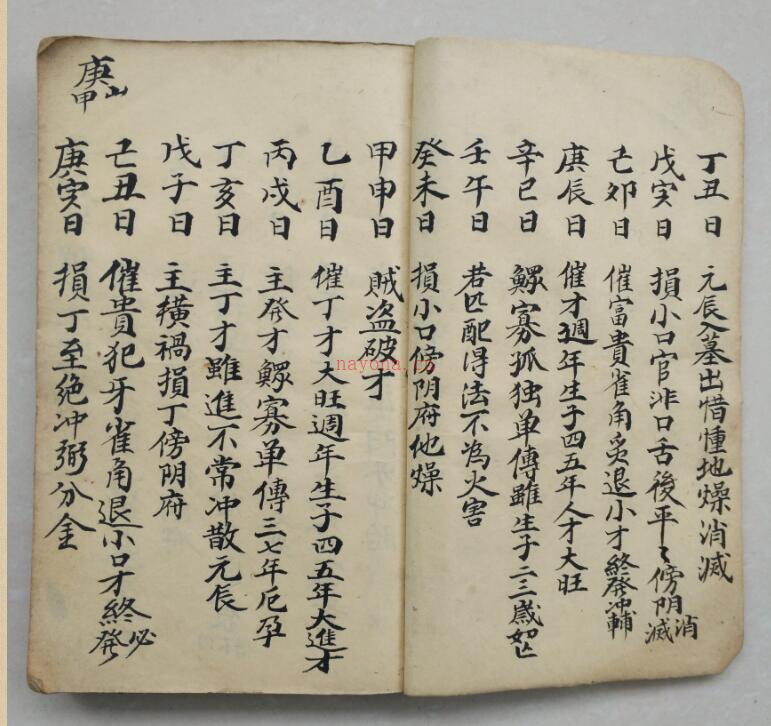 丁丑日 元辰入墓出惜懂地燥消滅
戊寅日 損小口官非口舌後平々傍阴消滅
己卯日 催富貴雀角爻退小才終發冲輔
庚辰日 催才週年生子四五年人才大旺
辛巳日 鰥寡孤独单傳雖生子二三歲如亡
壬午日 若匹配得法不為火害
癸未日 損小口傍阴府他燥
甲申日 賊盗破才
乙酉日 催丁才大旺週年生子四五年大進才
丙戌日 主發才鰥寡单傳三七年厄孕
丁亥日 主丁才雖進不常冲散元辰
戊子日 主横禍損丁傍阴府
己丑日 催貴犯牙雀角退小口才終必發
庚寅日 損丁至绝冲弼分金
庚山甲
nayona.cn